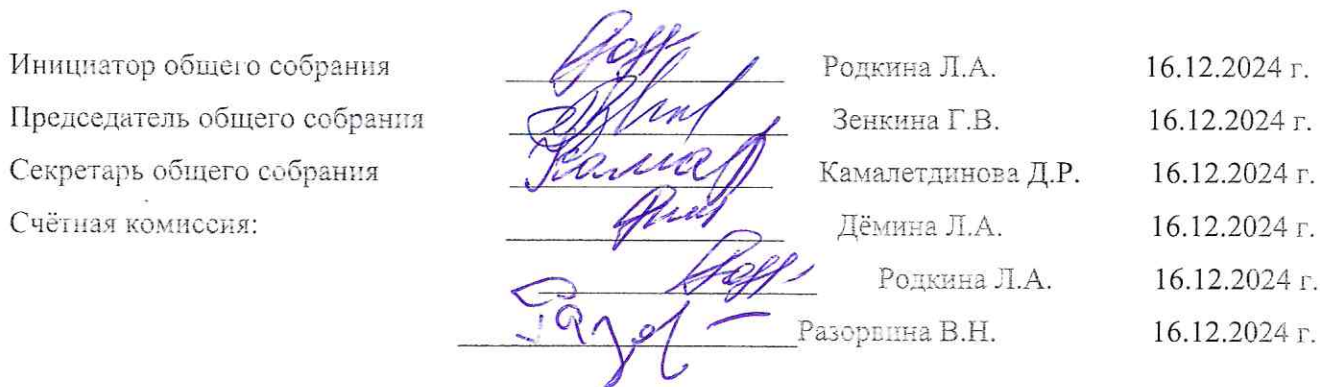 Инициатор общего собрания Родкина Л.А. 16.12.2024 г.
Председатель общего собрания Зенкина Г.В. 16.12.2024 г.
Секретарь общего собрания Камалетдинова Д.Р. 16.12.2024 г.
Счётная комиссия: Дёмина Л.А. 16.12.2024 г.
Родкина Л.А. 16.12.2024 г.
Разорвина В.Н. 16.12.2024 г.